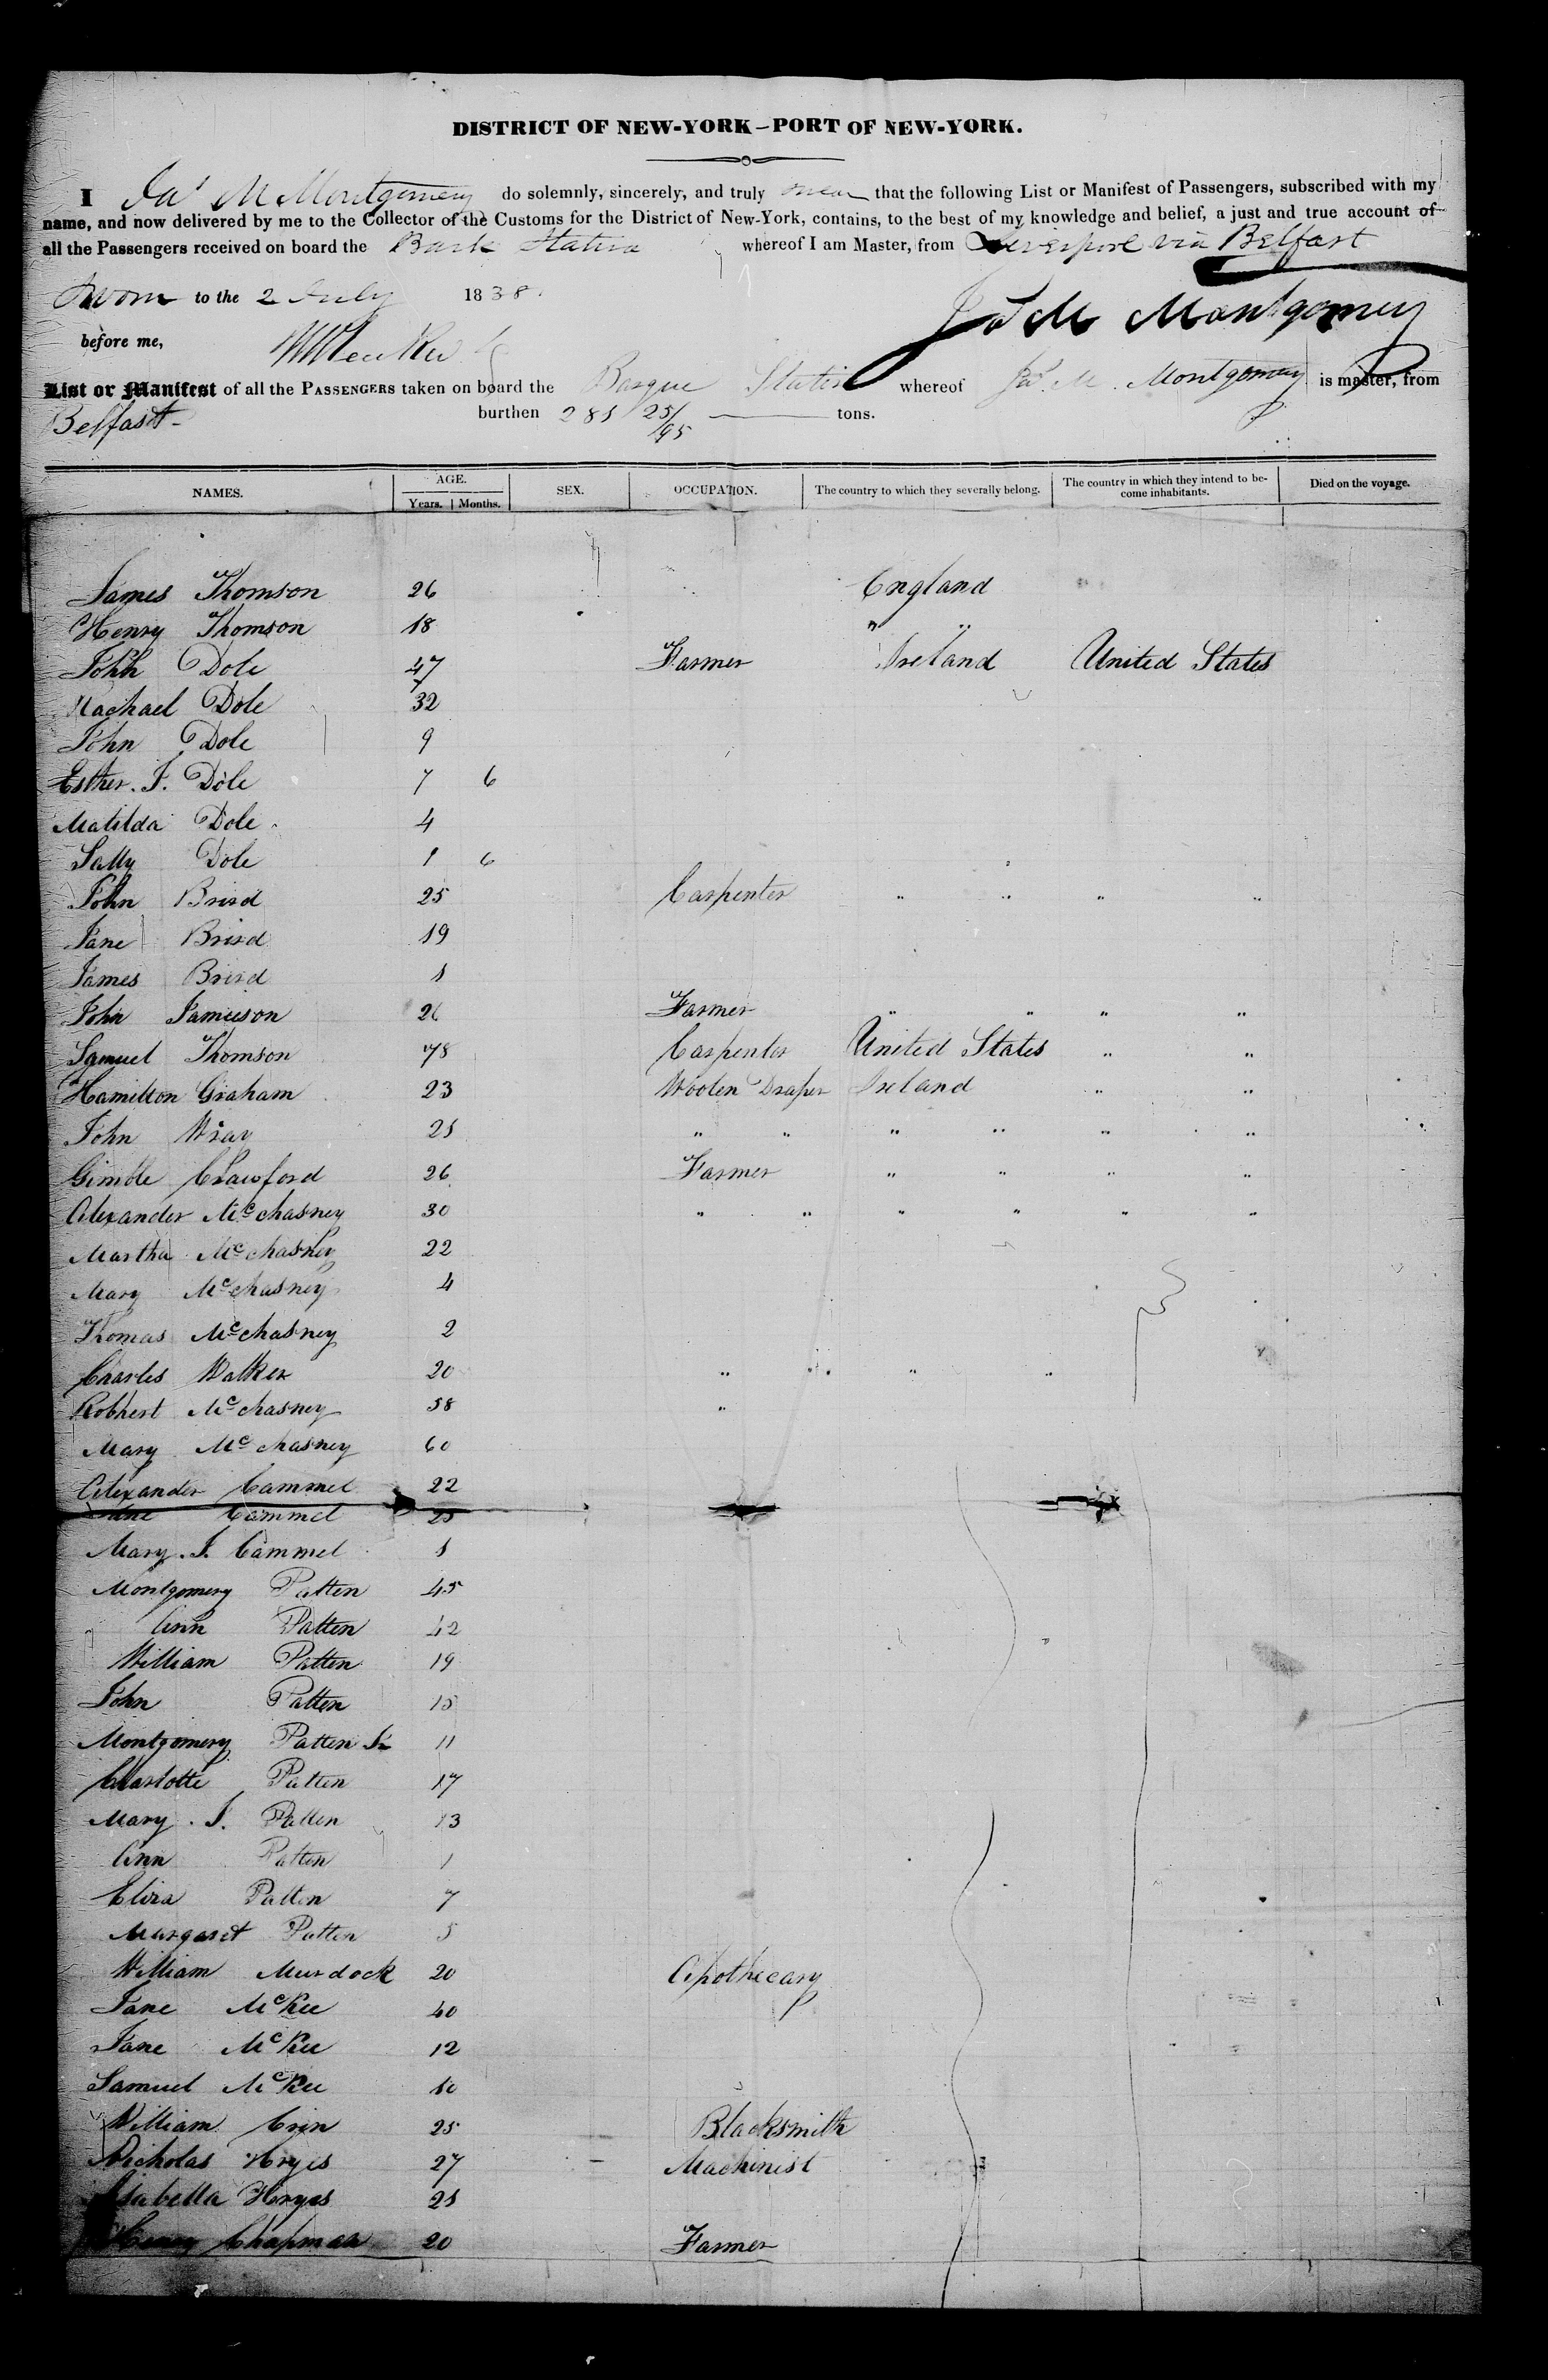 DISTRICT OF NEW-YORK—PORT OF NEW-YORK.
I Jas M Montgomery do solemnly, sincerely, and truly swear that the following List or Manifest of Passengers, subscribed with my
name, and now delivered by me to the Collector of the Customs for the District of New-York, contains, to the best of my knowledge and belief, a just and true account of
all the Passengers received on board the Bark Statira whereof I am Master, from Liverpool via Belfast
Sworn to the 2 July 1838. Jas M Montgomery
before me,
List or Manifest of all the PASSENGERS taken on board the Barque Statira whereof Jas. M. Montgomery is master, from
Belfast burthen 281 25/95 tons.
NAMES. AGE. Years. Months. SEX. OCCUPATION. The country to which they severally belong. The country in which they intend to become inhabitants. Died on the voyage.
James Thomson 26 England
Henry Thomson 18 " "
John Dole 47 Farmer Ireland United States
Rachael Dole 32
John Dole 9
Esther. J. Dole 7 6
Matilda Dole 4
Sally Dole 1 6
John Brird 25 Carpenter " " " "
Jane Brird 19
James Brird 1
John Jamieson 26 Farmer " " " "
Samuel Thomson 78 Carpenter United States " "
Hamilton Graham 23 Woolen Draper Ireland " "
John Wray 21 " " " " " "
Gimble Crawford 26 Farmer " " " "
Alexander McChasney 30 " " " " " "
Martha McChasney 22
Mary McChasney 4
Thomas McChasney 2
Charles Walker 20 " " " "
Robhert McChasney 58 "
Mary McChasney 60
Alexander Cammel 22
Jane Cammel 25
Mary. J. Cammel 1
Montgomery Patten 45
Ann Patten 42
William Patten 19
John Patten 15
Montgomery Patten Jr 11
Charlotte Patten 17
Mary. J. Patten 13
Ann Patten 1
Eliza Patten 7
Margaret Patten 5
William Murdock 20 Apothecary
Jane McKee 40
Jane McKee 12
Samuel McKee 10
William Crin 25 Blacksmith
Nicholas Hryes 27 Machinist
Isabella Hryes 21
Henry Chapman 20 Farmer